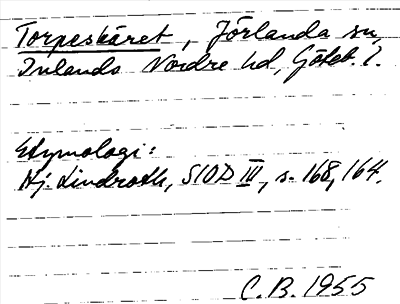 Torpeskäret, Jörlanda sn,
Inlands Nordre hd, Göteb. l.
Etymologi:
Hj. Lindroth, SIOD III, s. 168, 164.
C.B. 1955